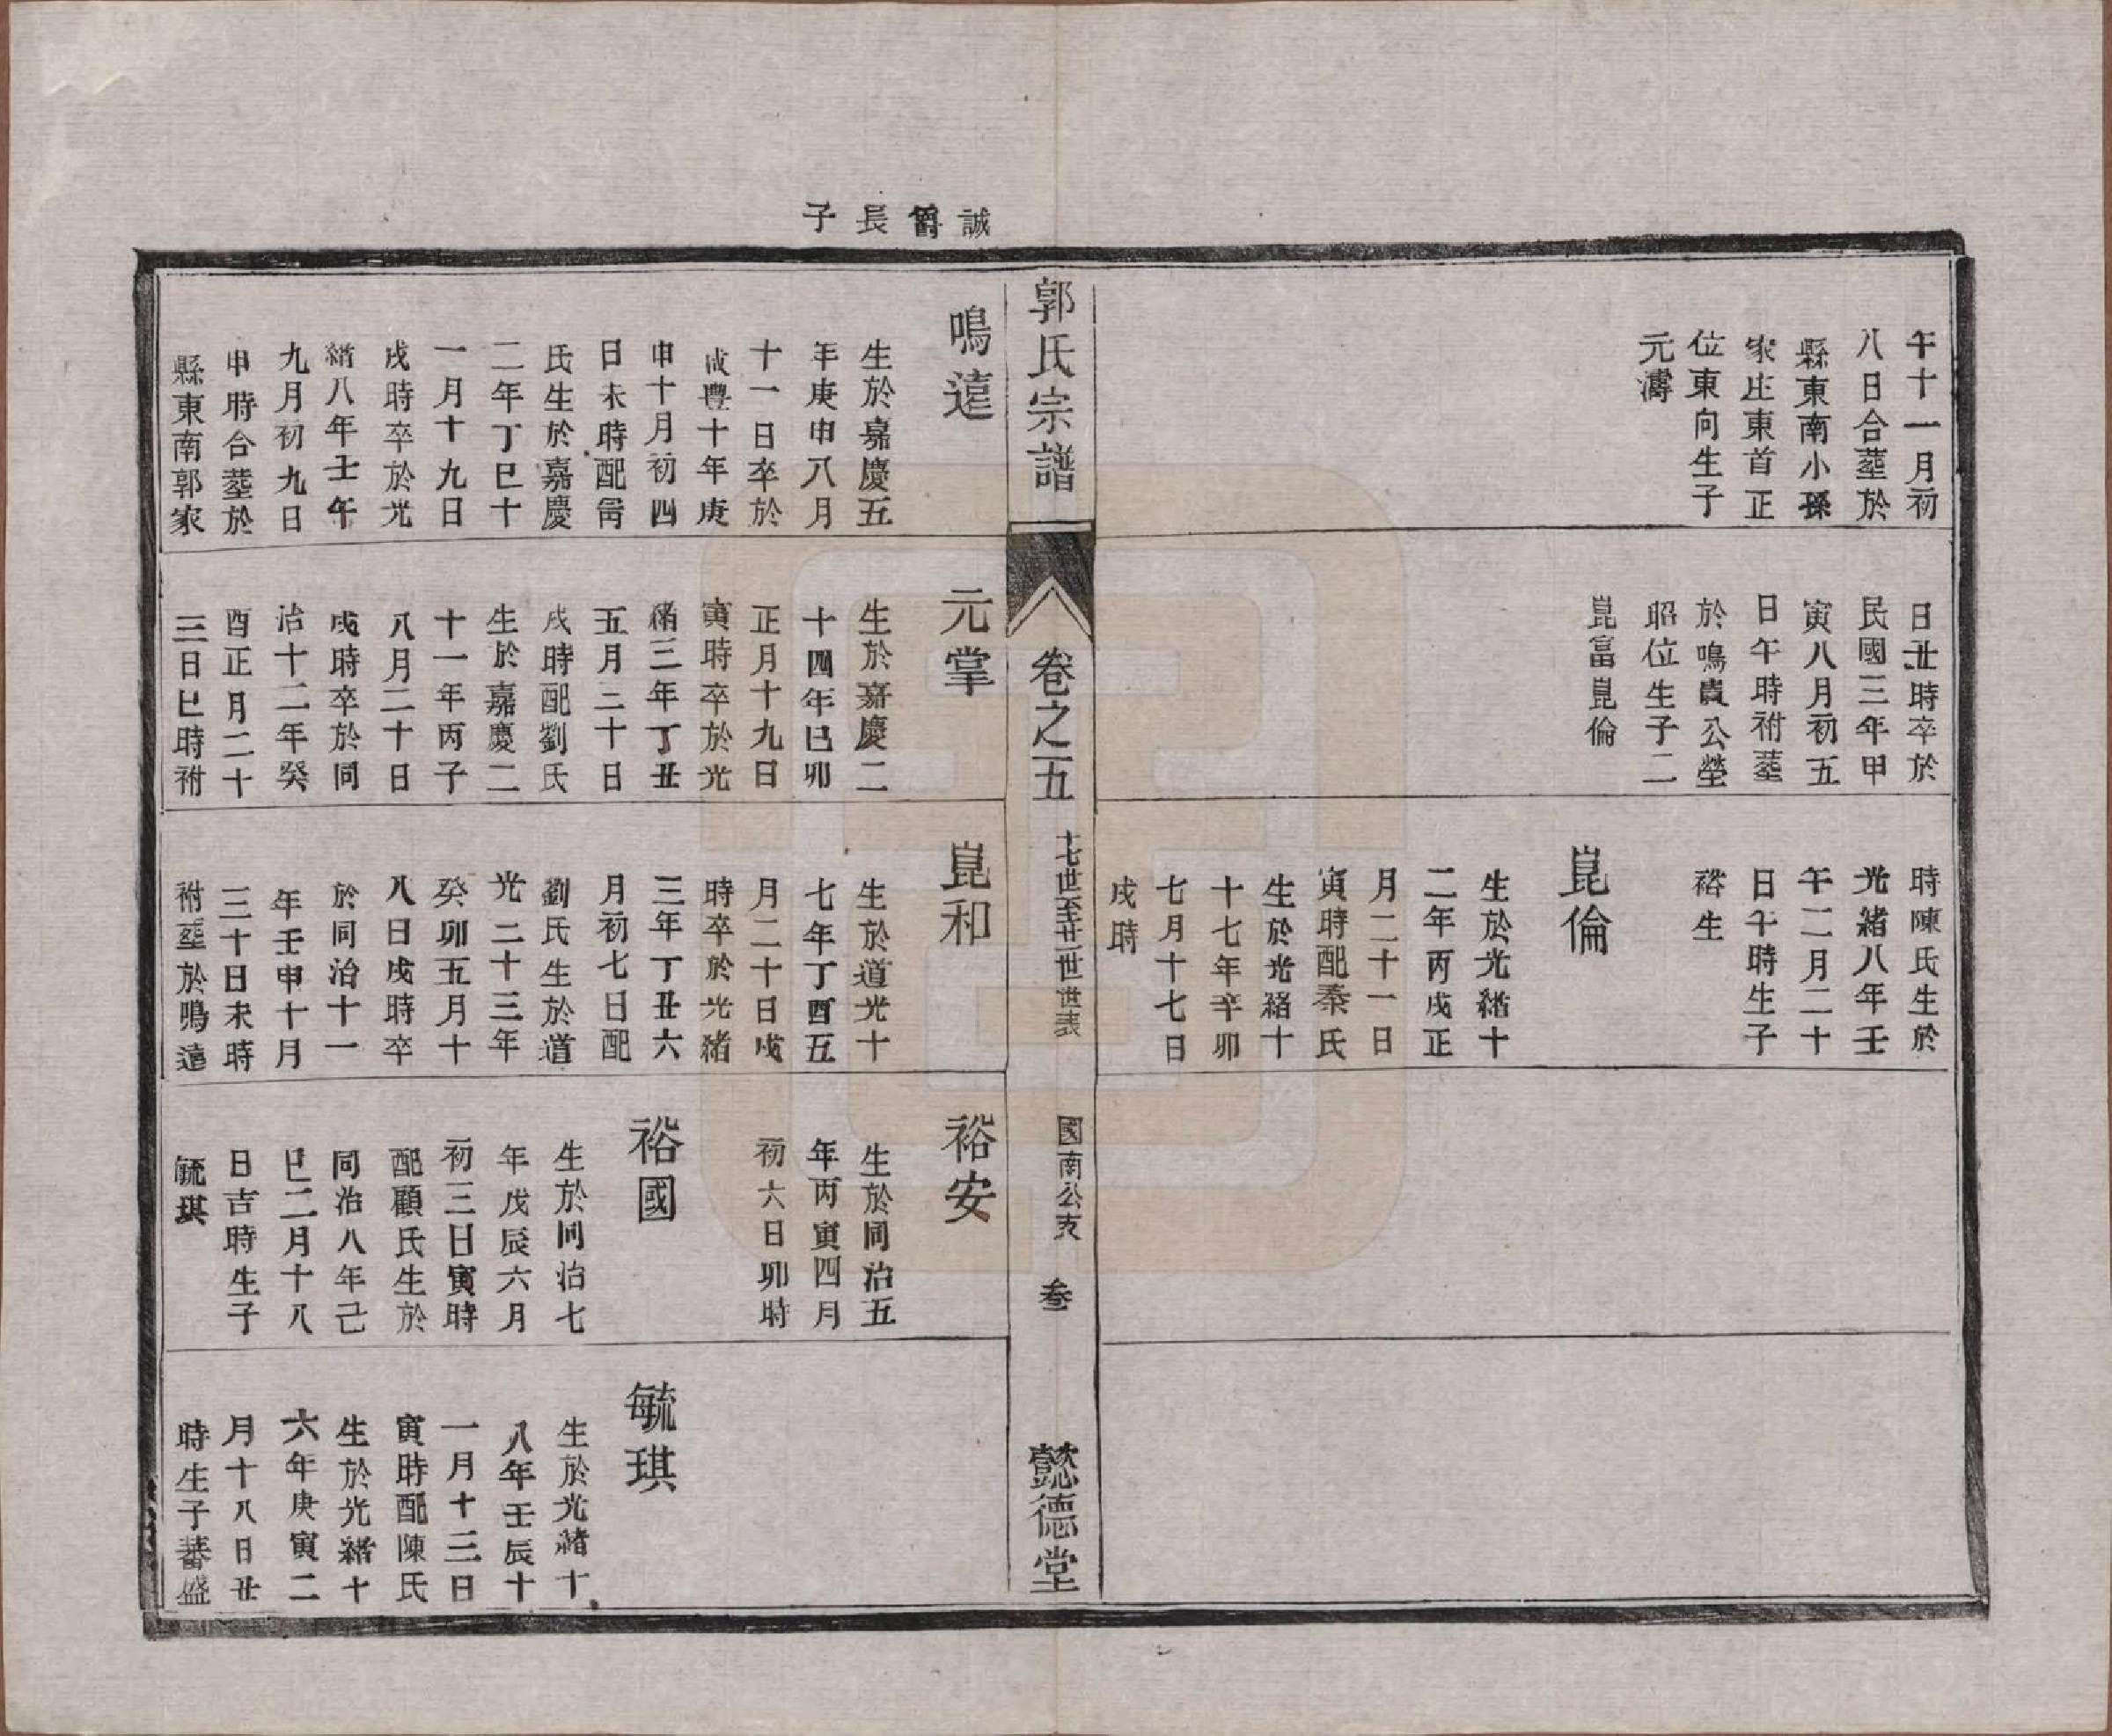 午十一月初
八日合塟於
縣東南小孫
家庄東首正
位東向生子
元濤
日丑時卒於
民國三年甲
寅八月初五
日午時祔塟
於鳴貴公塋
昭位生子二
崑富崑倫
時陳氏生於
光緒八年壬
午二月二十
日午時生子
裕生
崑倫
生於光緒十
二年丙戌正
月二十一日
寅時配秦氏
生於光緒十
十七年辛卯
七月十七日
戌時
郭氏宗譜
卷之五
十七世至廿一世世表
國南公支
叁
懿德堂
誠爵長子
鳴遠
生於嘉慶五
年庚申八月
十一日卒於
咸豐十年庚
申十月初四
日未時配喬
氏生於嘉慶
二年丁巳十
一月十九日
戌時卒於光
緒八年壬午
九月初九日
申時合塟於
縣東南郭家
元掌
生於嘉慶二
十四年巳卯
正月十九日
寅時卒於光
緒三年丁丑
五月二十日
戌時配劉氏
生於嘉慶二
十一年丙子
八月二十日
戌時卒於同
治十二年癸
酉正月二十
三日巳時祔
崑和
生於道光十
七年丁酉五
月二十日戌
時卒於光緒
三年丁丑六
月初七日配
劉氏生於道
光二十三年
癸卯五月十
八日戌時卒
於同治十一
年壬申十月
三十日未時
祔塟於鳴遠
裕安
生於同治五
年丙寅四月
初六日卯時
裕國
生於同治七
年戊辰六月
初三日寅時
配顧氏生於
同治八年己
巳二月十八
日吉時生子
毓琪
毓琪
生於光緒十
八年壬辰十
一月十三日
寅時配陳氏
生於光緒十
六年庚寅二
月十八日丑
時生子蕃盛